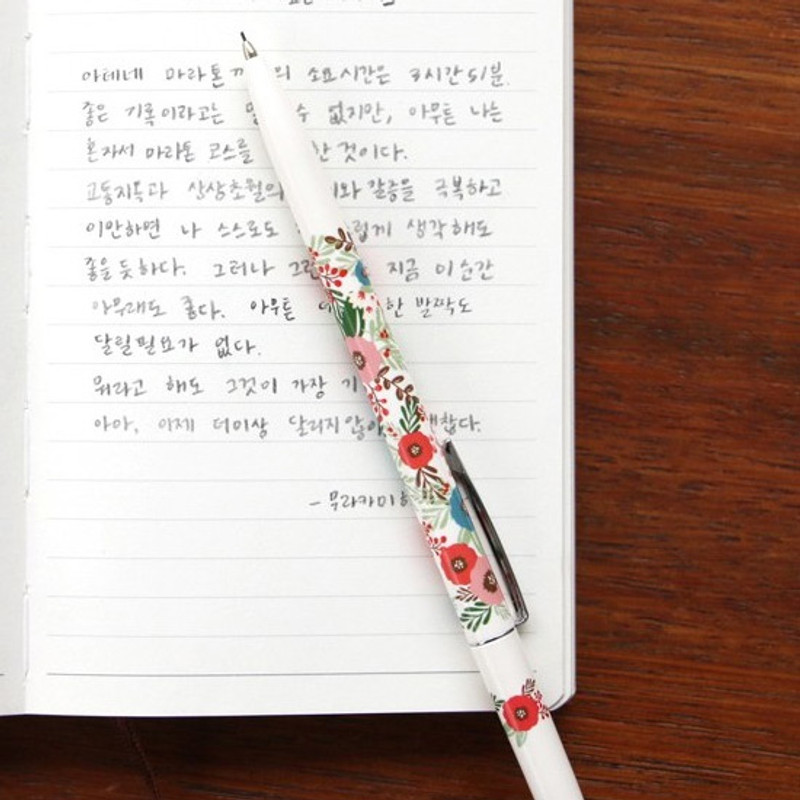 아테네 마라톤까 의 소요시간은 3시간 51분.
좋은 기록이라고는 수 없지만, 아무튼 나는
혼자서 마라톤 코스를 한 것이다.
교통지옥과 상상초월의 와 갈증을 극복하고
이만하면 나 스스로도 럽게 생각해도
좋을듯하다. 그러나 그런 지금 이순간
아무래도 좋다. 아무튼 한 발짝도
달릴필요가 없다.
뭐라고 해도 그것이 가장 기
아아, 이제 더이상 달리지 않아 괜찮다.
- 무라카미 하